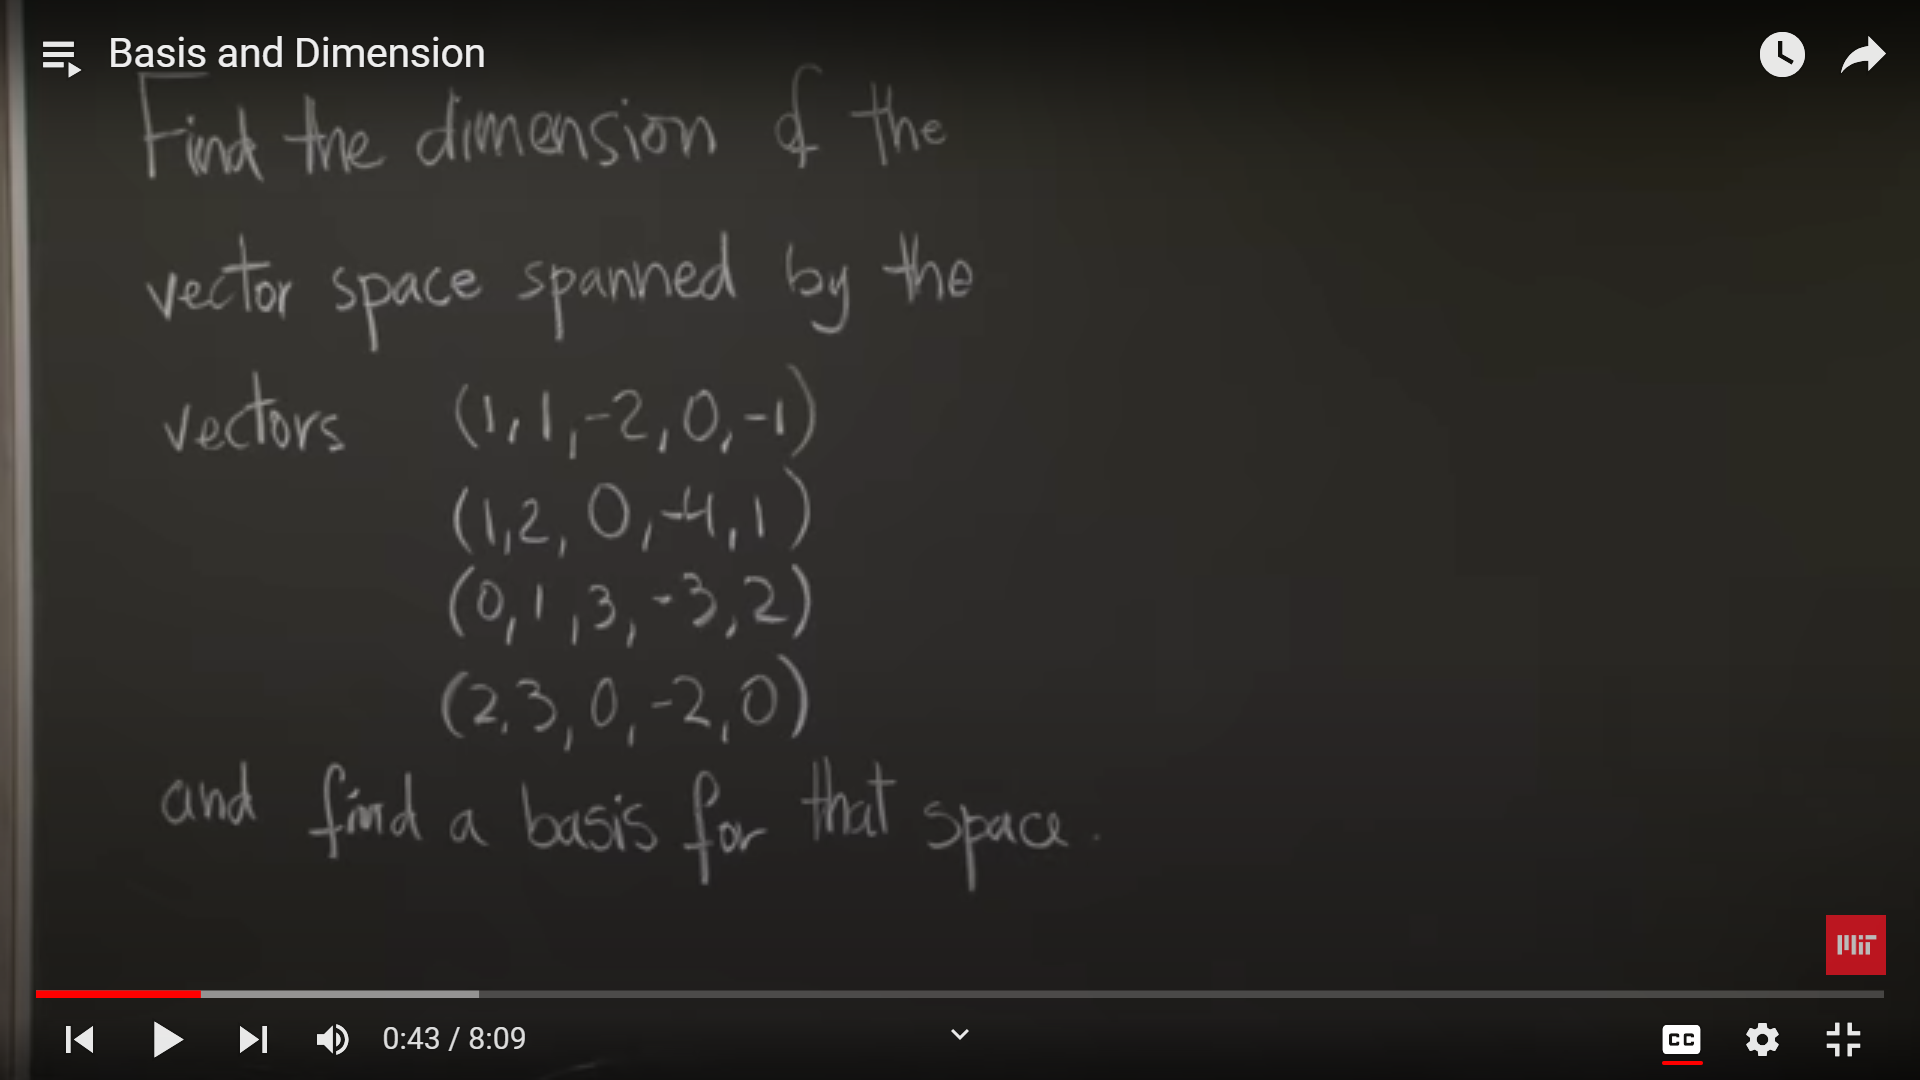 Basis and Dimension
Find the dimension of the
vector space spanned by the
vectors (1,1,-2,0,-1)
(1,2,0,-4,1)
(0,1,3,-3,2)
(2,3,0,-2,0)
and find a basis for that space.
MIT
0:43 / 8:09
CC